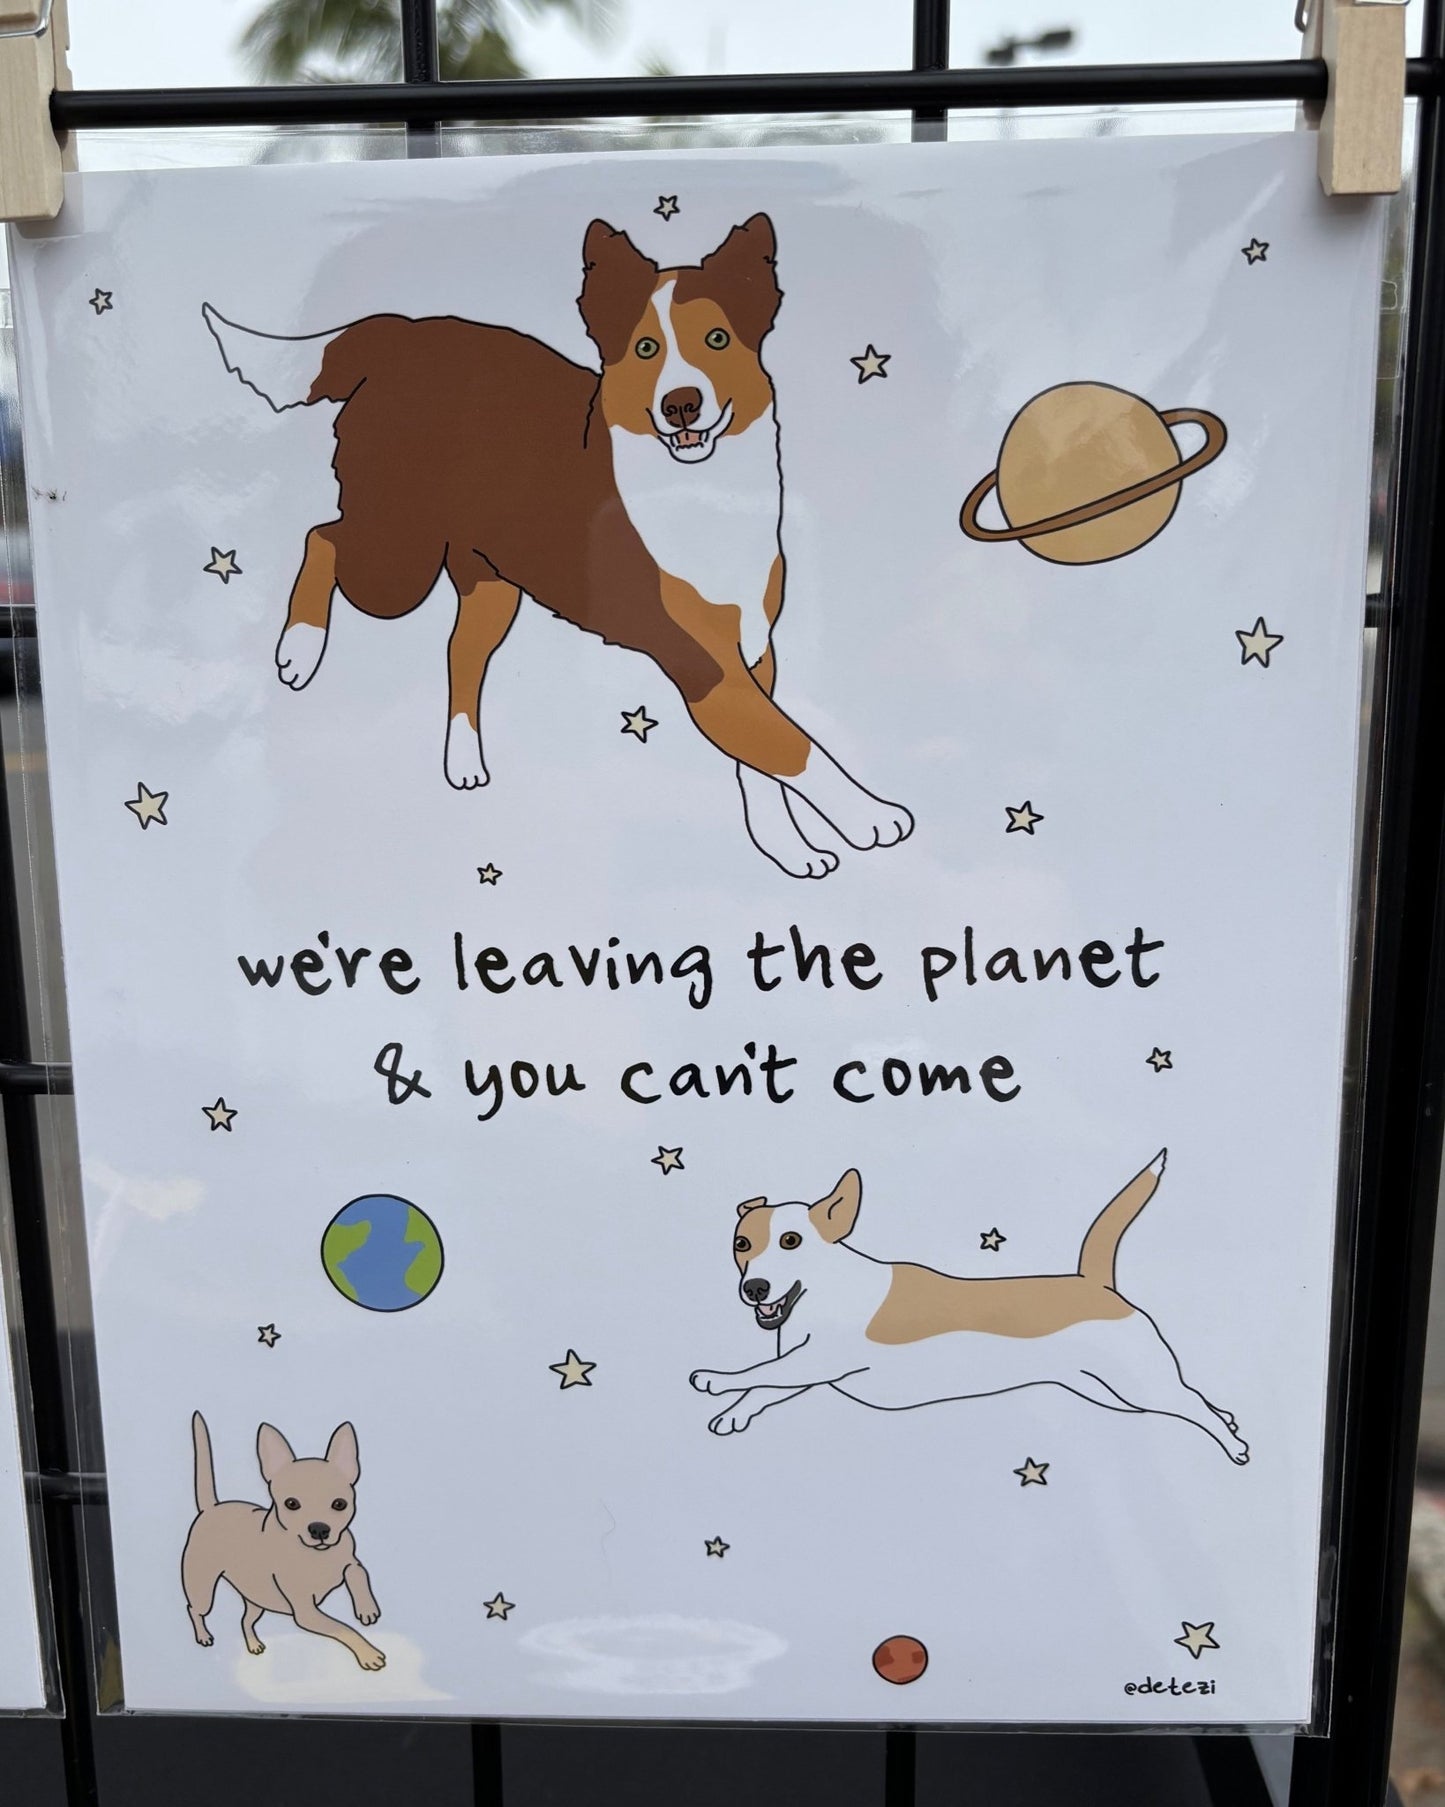 we're leaving the planet
& you can't come
@detezi